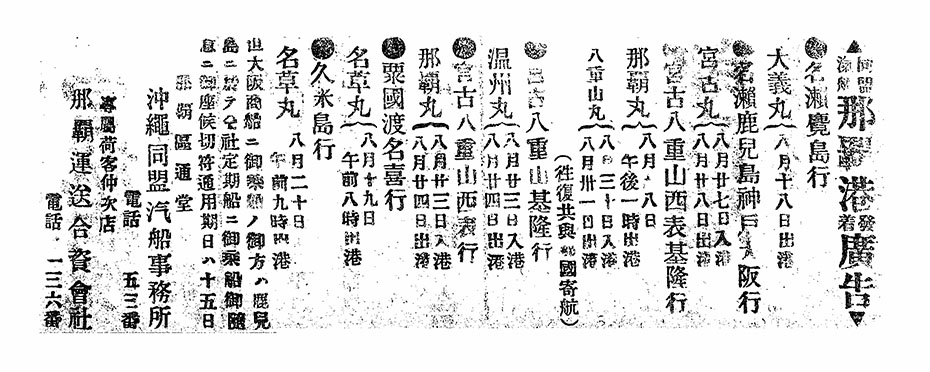 同盟汽船 那覇港發着廣告
●名瀬覺島行
大義丸 八月十八日出港
●名瀬鹿兒島神戸大阪行
宮古丸 八月廿七日入港
八月廿八日出港
●宮古八重山西表基隆行
那覇丸 八月十八日
午後一時出港
八重山丸 八月三十日入港
八月卅一日出港
(往復共與那國寄航)
●宮古八重山基隆行
温州丸 八月廿三日入港
八月廿四日出港
●宮古八重山西表行
那覇丸 八月廿三日入港
八月廿四日出港
●粟國渡名喜行
名草丸 八月十九日
午前八時出港
●久米島行
名草丸 八月二十日
午前九時出港
但大阪商船ニ御乘船ノ御方ハ鹿兒
島ニ於テ仝社定期船ニ御乘船御隨
意ニ御座候切符通用期日ハ十五日
那覇區通堂
沖繩同盟汽船事務所
電話 五三番
專屬荷客仲次店
那覇運送合資會社
電話 一三六番